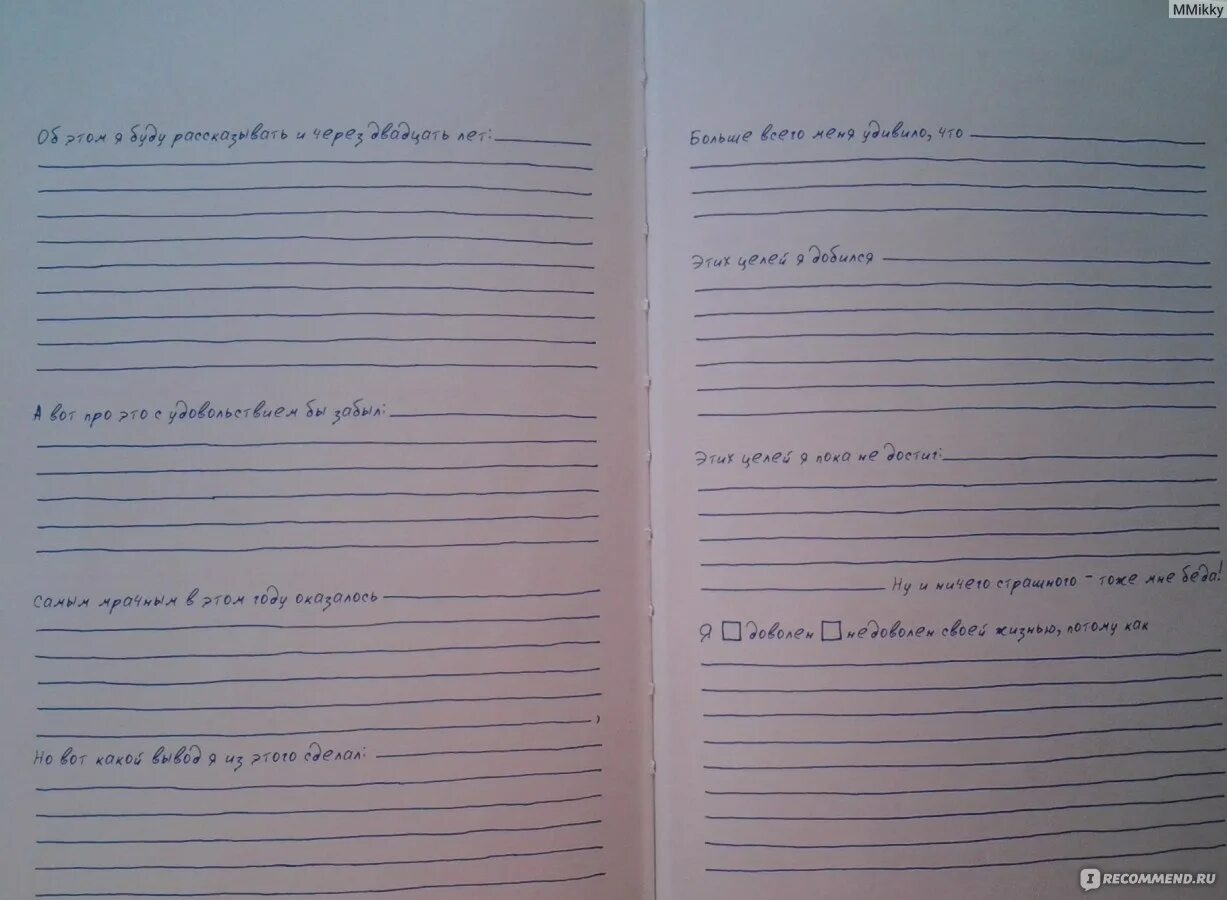 MMikky
Об этом я буду рассказывать и через двадцать лет:
А вот про это с удовольствием бы забыл:
Самым мрачным в этом году оказалось
,
Но вот какой вывод я из этого сделал:
Больше всего меня удивило, что
Этих целей я добился
Этих целей я пока не достиг:
Ну и ничего страшного – тоже мне беда!
Я доволен недоволен своей жизнью, потому как
IRECOMMEND.RU